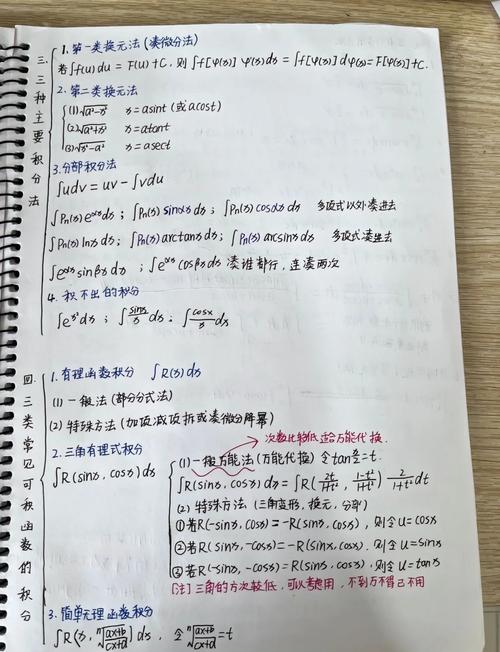 三、三种主要积分法
1. 第一类换元法(凑微分法)
若∫f(u)du = F(u)+C, 则 ∫f[φ(x)]φ'(x)dx = ∫f[φ(x)]dφ(x)=F[φ(x)]+C.
2. 第二类换元法
(1)√(a²-x²) x=asint (或acost)
(2)√(a²+x²) x=atant
(3)√(x²-a²) x=asect
3.分部积分法
∫udv = uv - ∫vdu
∫Pn(x)e^(αx)dx ; ∫Pn(x) sinαx dx ; ∫Pn(x)cosαx dx 多项式以外凑进去
∫Pn(x)lnx dx ; ∫Pn(x)arctanx dx ; ∫Pn(x)arcsinx dx 多项式凑进去
∫e^(αx)sinβx dx ; ∫e^(αx)cosβx dx 凑谁都行, 连凑两次
4. 积不出的积分
∫e^(x²)dx ; ∫(sinx/x)dx ; ∫(cosx/x)dx
四.三类常见可积函数的积分
1.有理函数积分 ∫R(x)dx
(1) 一般法 (部分分式法)
(2) 特殊方法 (加项减项拆或凑微分降幂)
2.三角有理式积分
∫R(sinx, cosx)dx
次数比较低 适合万能代换.
(1)一般万能法 (万能代换) 令tan(x/2)=t.
∫R(sinx, cosx)dx = ∫R(2t/(1+t²), (1-t²)/(1+t²)) 2/(1+t²) dt
(2) 特殊方法 (三角变形, 换元, 分部)
①若R(-sinx, cosx) = -R(sinx, cosx), 则令u=cosx
②若R(sinx, -cosx)=-R(sinx, cosx), 则令u=sinx
③若R(-sinx, -cosx)=R(sinx, cosx), 则令u=tanx
[注]三角的方次较低, 可以考虑用, 不到万不得已不用
3.简单无理函数积分
∫R(x, ⁿ√((ax+b)/(cx+d)))dx, 令ⁿ√((ax+b)/(cx+d))=t